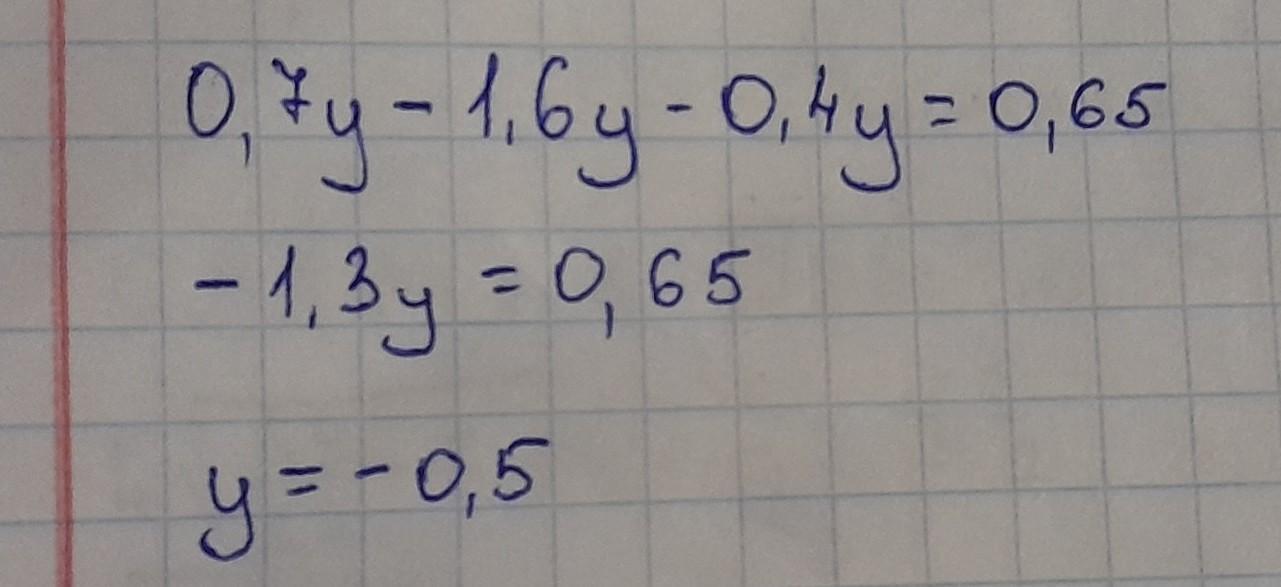 0,7y - 1,6y - 0,4y = 0,65
- 1,3y = 0,65
y = - 0,5